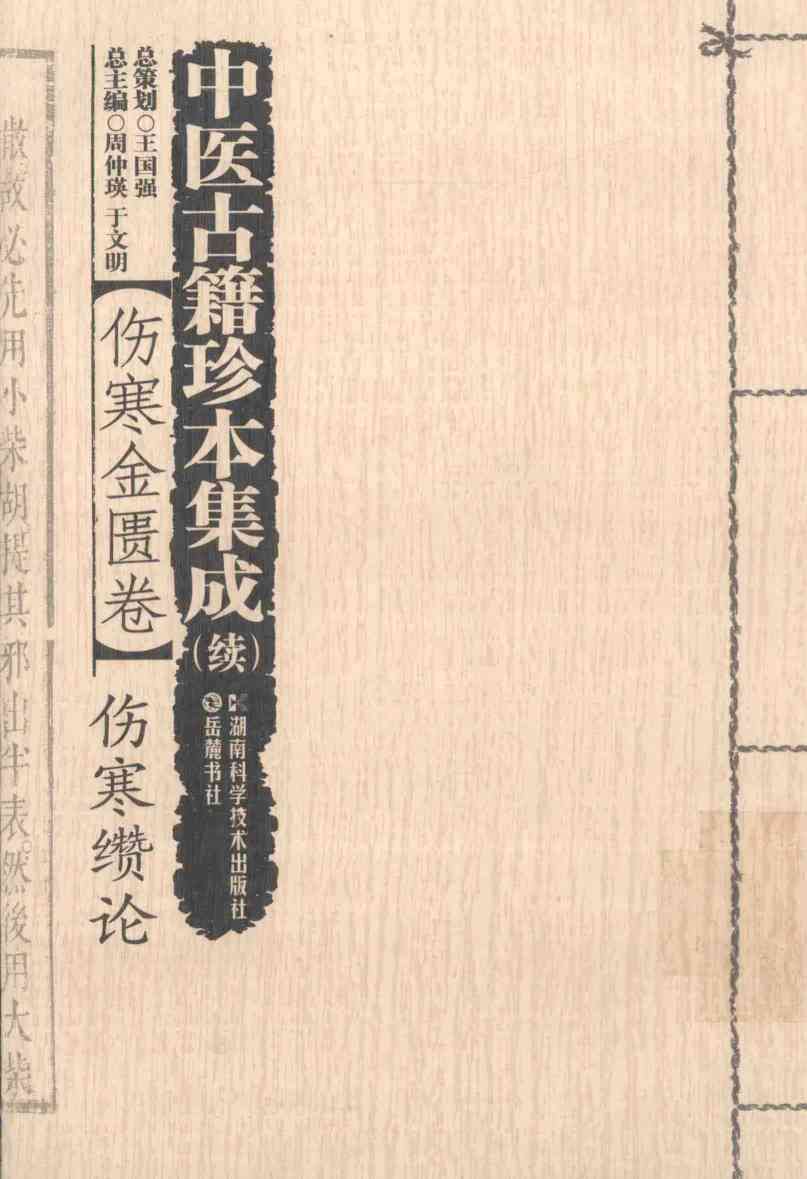 中医古籍珍本集成(续)
湖南科学技术出版社
岳麓书社
总策划○王国强
总主编○周仲瑛 于文明
【伤寒金匮卷】
伤寒缵论
散故必先用小柴胡提其邪出半表然後用大柴